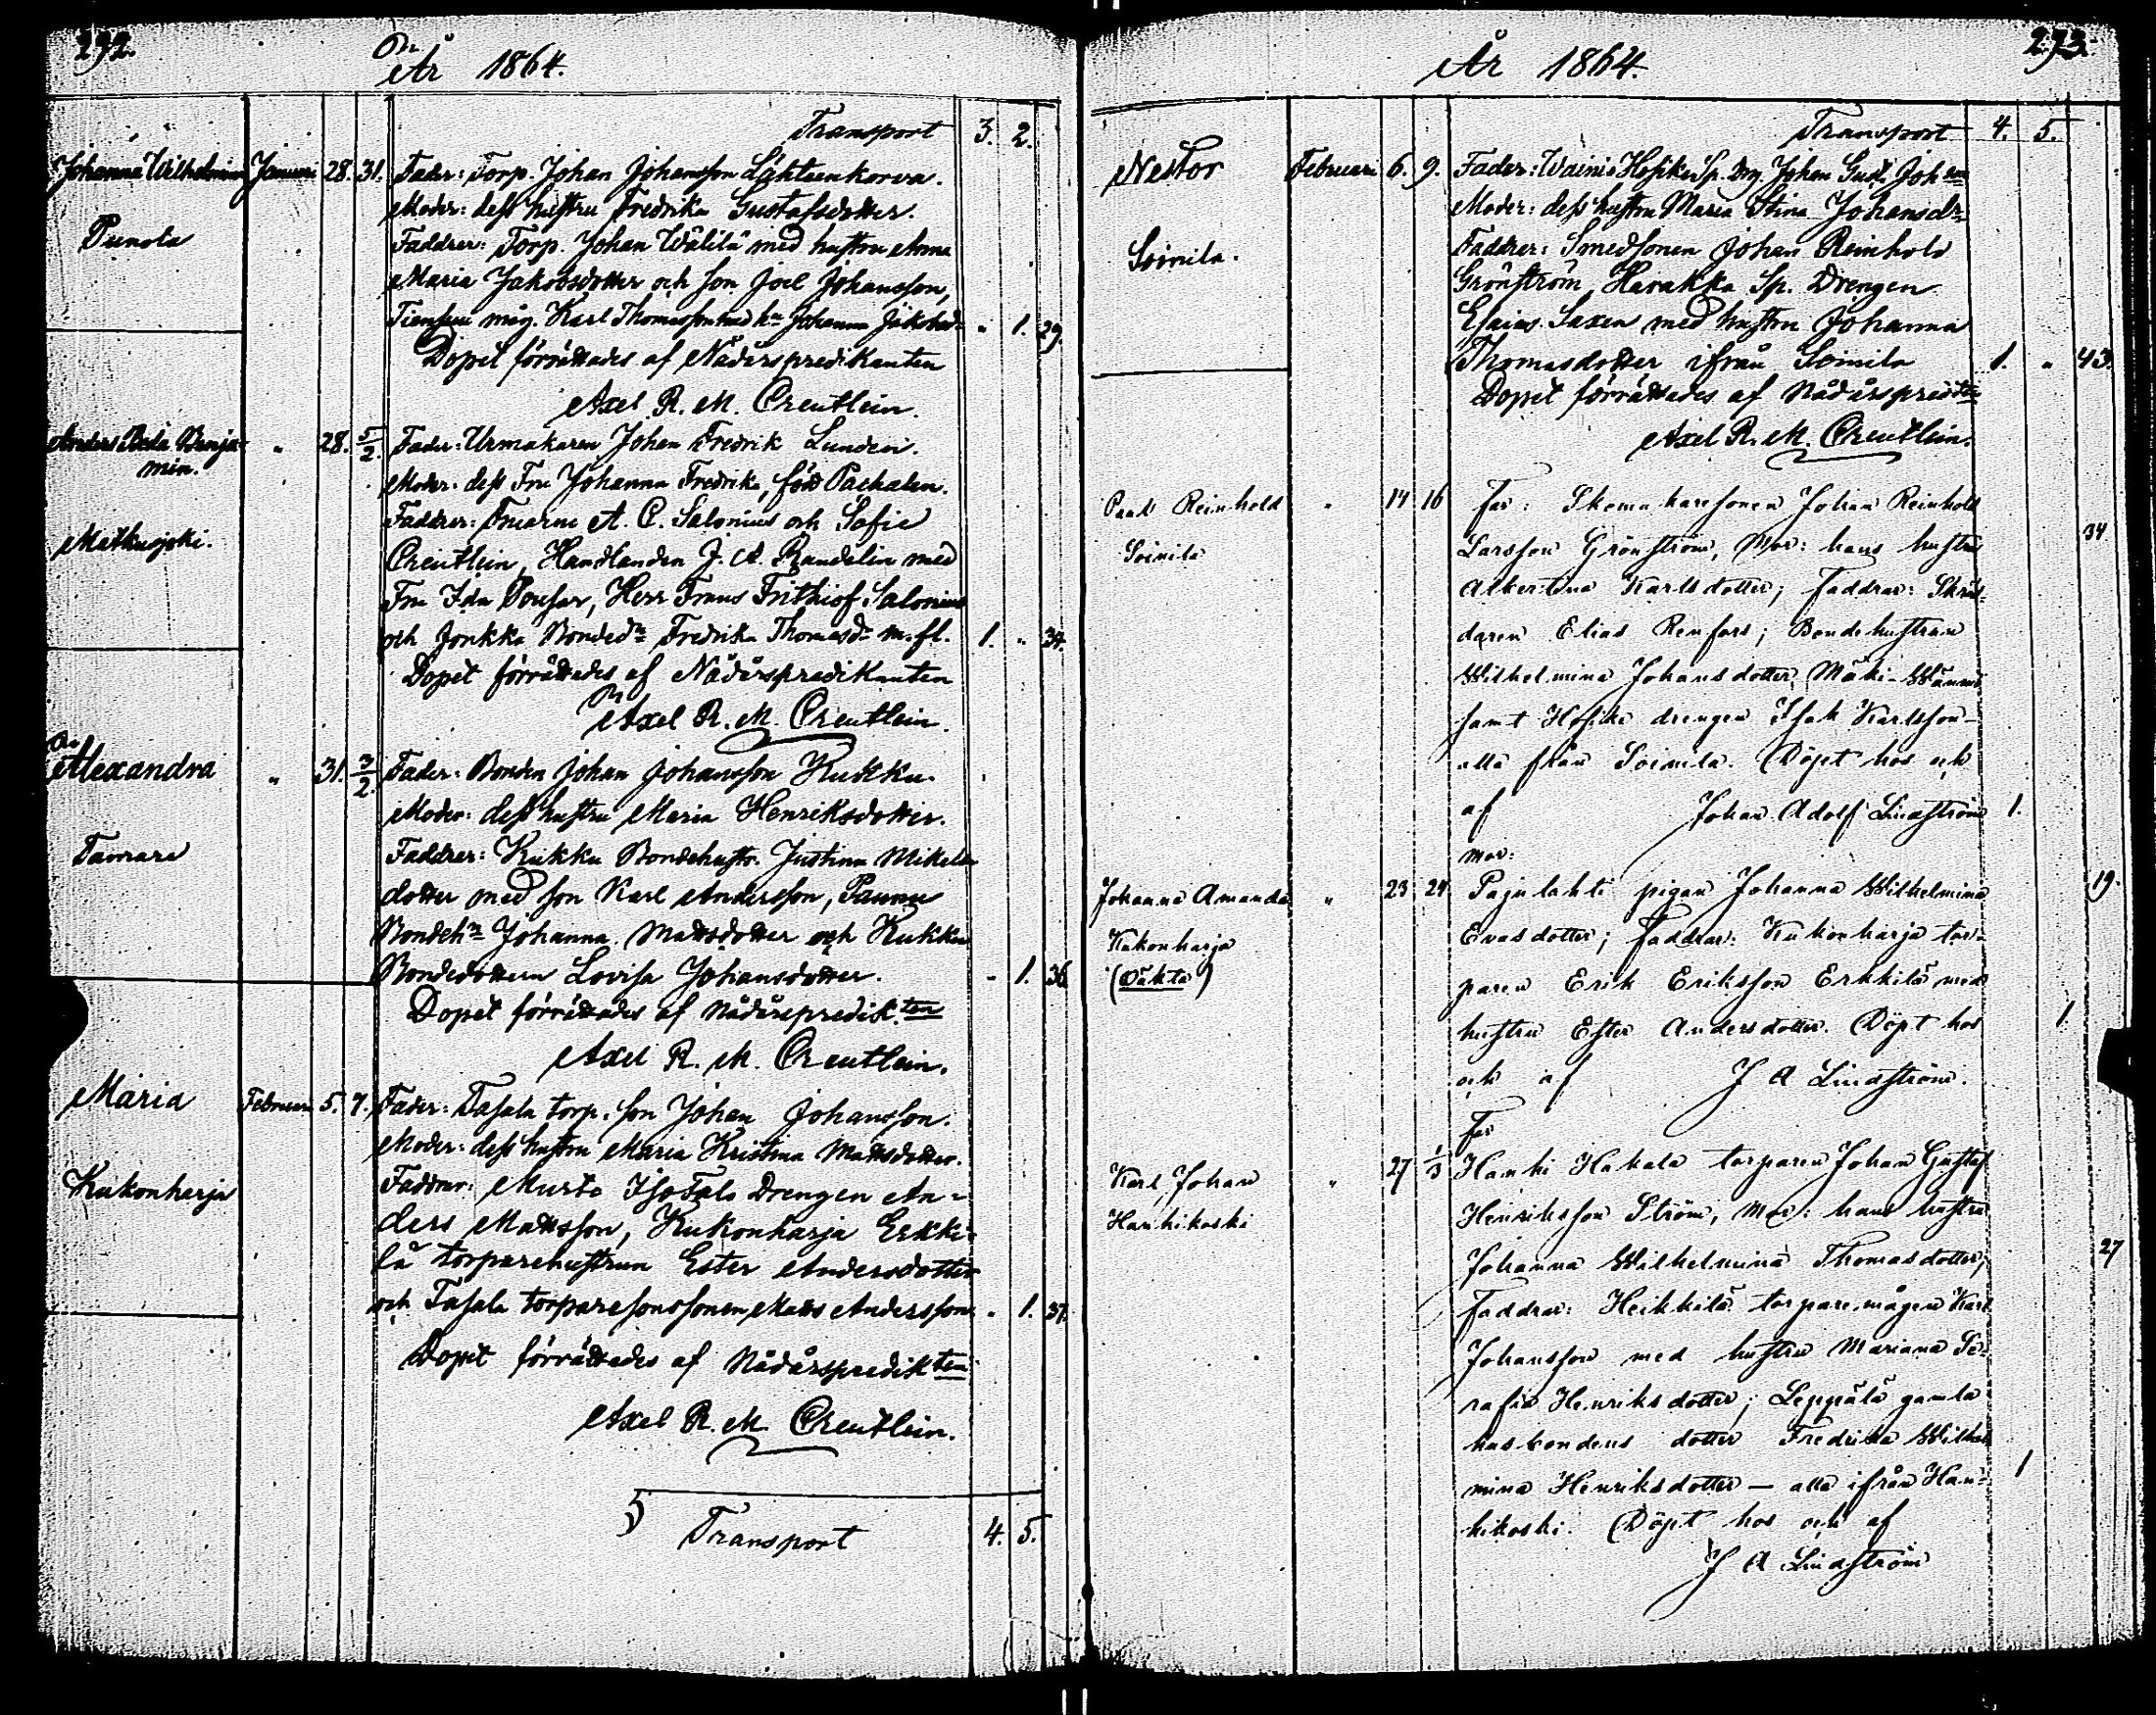 292.
År 1864.
Transport 3. 2.
Johanna Wilhelmina Januari 28. 31. Fader: Torp. Johan Johansson Lähteenkorva.
Moder: dess hustru Fredrika Gustafsdotter.
Punola
Faddrer: Torp. Johan Wälilä med hustru Anna
Maria Jakobsdotter och son Joel Johansson,
måg. Karl Thomasson med hu Johanna Jakobsd. " 1. 29.
Dopet förrättades af Nådårspredikanten
Axel R. M. Creutlein.
Anders Benja-
min.
" 28. 5/2. Fader: Urmakaren Johan Fredrik Lunden.
Moder: dess Fru Johanna Fredrika, född Pachalen.
Matkusjoki.
Faddrer: Fruarne A. C. Salonius och Sofie
Creutlein, Handlanden J. A. Randelin med
Fru Ida Pousar, Herr Frans Frithiof Salonius
och Jonkka Bonded. Fredrika Thomasdr m. fl. 1. " 34.
Dopet förrättades af Nådårspredikanten
Axel R. M. Creutlein.
Alexandra " 31. 3/2. Fader: Bonden Johan Johansson Kukku.
Moder: dess hustru Maria Henriksdotter.
Tamrare
Faddrer: Kukku Bondehustr. Justina Mikels-
dotter med son Karl Andersson, Paunu
Bondeh. Johanna Mattsdotter och Kukku
Bondedottern Lovisa Johansdotter. " 1. 36
Dopet förrättades af Nådårspredik.ten
Axel R. M. Creutlein.
Maria Februari 5. 7. Fader: Tasala torp. son Johan Johansson.
Moder: dess hustru Maria Kristina Mattsdotter.
Kukonharja
Faddrar: Murto Isotalo Drengen An-
ders Mattsson, Kukonharja Erkki-
lä torparehustrun Ester Andersdotter
och Tasala torparesonssonen Matts Andersson. " 1. 37.
Dopet förrättades af Nådårspredikten
Axel R. M. Creutlein.
Transport 4. 5.
293.
År 1864.
Transport 4. 5.
Nestor Februari 6. 9. Fader: Wainio Hosike Sp. Drg. Johan Gust. Johsson
Moder: dess hustru Maria Stina Johansdr
Soinila.
Faddrer: Smedsonen Johan Reinhold
Grönström, Harakka Sp. Drengen
Esaias Saxen med hustru Johanna
Thomasdotter ifrån Soinila 1. " 43.
Dopet förrättades af Nådårspredten
Axel R. M. Creutlein.
Paul Reinhold " 14 16 Far: Skomakaresonen Johan Reinhold
Soinila
Larsson Grönström, Mor: hans hustru 34
Albertina Karlsdotter; Faddrar: Skräd-
daren Elias Renfors; Bondehustrun
Wilhelmina Johansdotter Mäki-Wänni
samt Hosike drengen Isak Karlsson -
alla från Soinila. Döpt hos och
af Johan Adolf Lindström 1.
mor:
Johanna Amanda " 23 24 Pajulahti pigan Johanna Wilhelmina 19.
Kukonharja
(Oäkta)
Evasdotter; Faddrar: Kukonharja tor-
paren Erik Eriksson Erkkilä med
hustru Ester Andersdotter. Döpt hos 1
och af J A Lindström.
Far
Karl Johan " 27 1/3 Hanhi Hakala torparen Johan Gustaf
Hanhikoski
Henriksson Ström, Mor: hans hustru
Johanna Wilhelmina Thomasdotter; 27
Faddrar: Heikkilä torpare mågen Karl
Johansson med hustru Mariana Se-
rafia Henriksdotter; Leppälä gamla
husbondens dotter Fredrika Wilhel-
mina Henriksdotter — alla ifrån Han- 1
hikoski. Döpt hos och af
J A Lindström